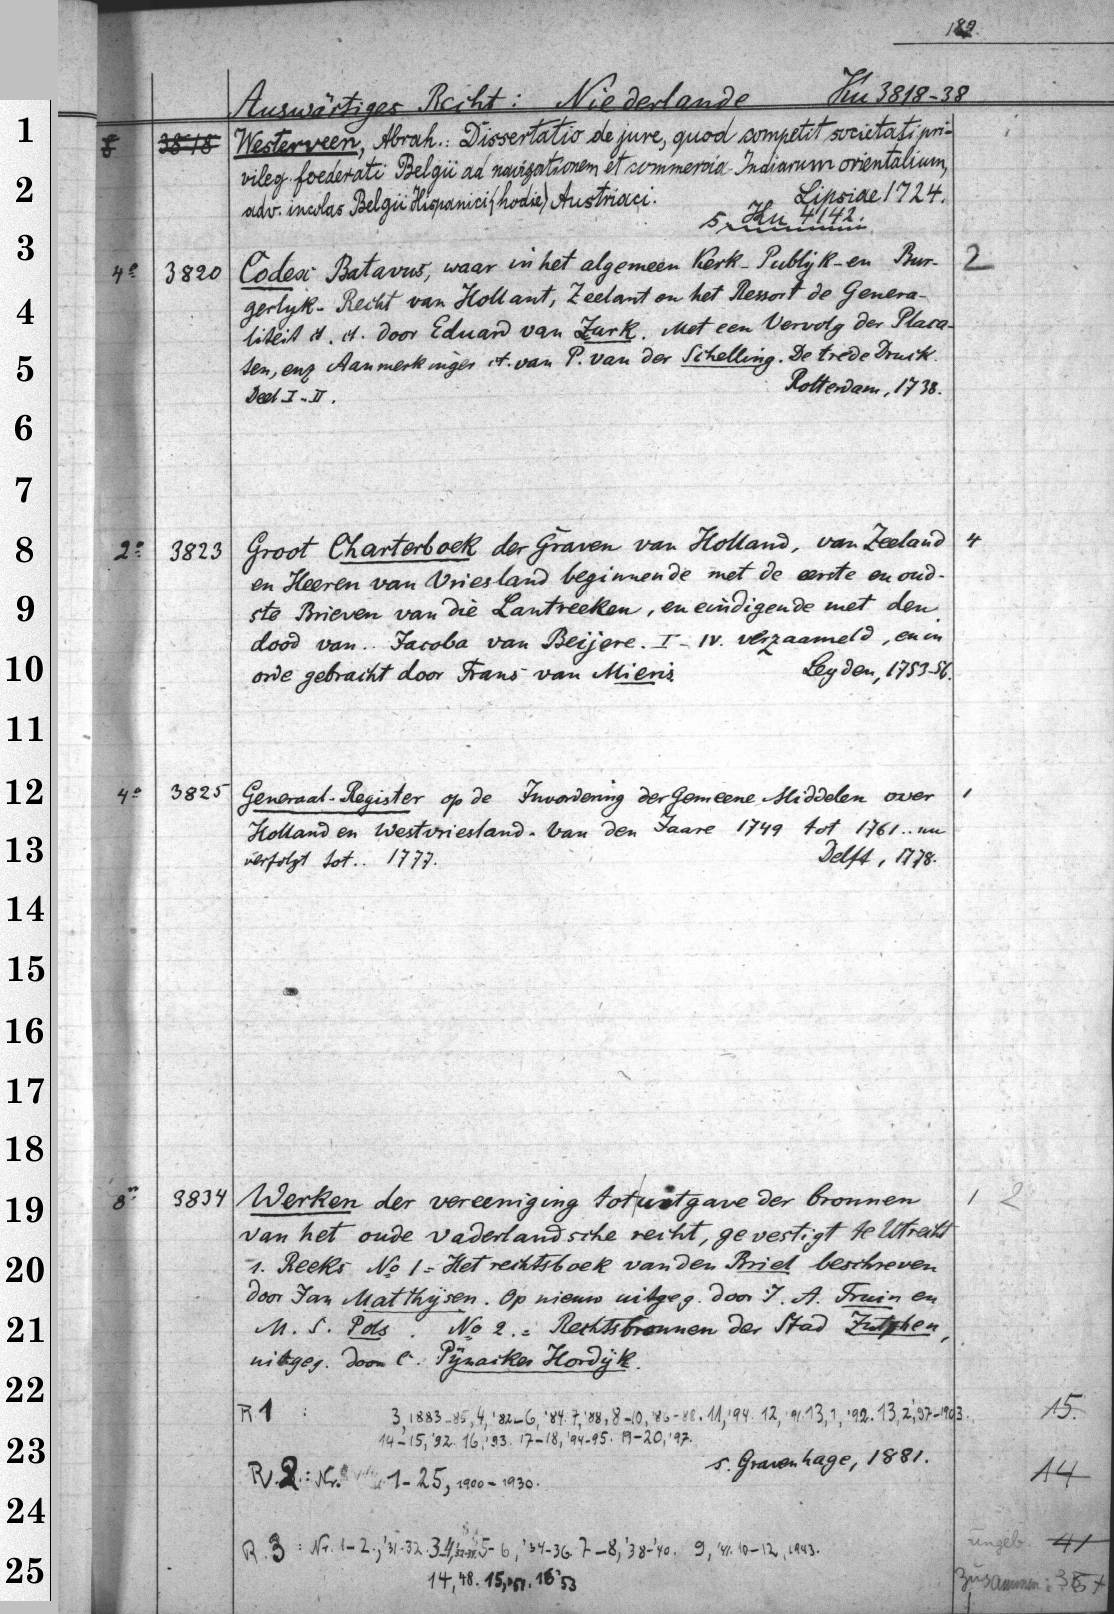 182.
Auswärtiges Recht: Niederlande Ku 3818-38
8 3818 Westerveen, Abrah.: Dissertatio de jure, quod competit societati pri-
vileg. foederati Belgii ad navigationem et commercia Indiarum orientalium,
adv. incolas Belgii Hispanici (hodie) Austriaci. Lipsiae 1724.
s. Ku 4142.
4° 3820 Codex Batavus, waar in het algemeen Kerk- Publyk- en Bur- 2
gerlyk- Recht van Hollant, Zeelant en het Ressort de Genera-
liteit et. et. door Eduard van Zurk. Met een Vervolg der Placa-
ten, enz Aanmerkinger et. van P. van der Schelling. De trede Druk.
Deel I-II. Rotterdam, 1738.
2° 3823 Groot Charterboek der Graven van Holland, van Zeeland 4
en Heeren van Vriesland beginnende met de eerste en oud-
ste Brieven van die Lantreeken, en eindigende met den
dood van.. Jacoba van Beijere. I-IV. verzaameld, en in
orde gebracht door Frans van Mieris Leyden, 1753-56.
4° 3825 Generaal-Register op de Invordering der Gemeene Middelen over 1
Holland en Westvriesland. Van den Jaare 1749 tot 1761.. nu
verfolgt tot.. 1777. Delft, 1778.
8° 3834 Werken der vereeniging tot uitgave der bronnen 1 2
van het oude vaderlandsche recht, gevestigt te Utrecht
1. Reeks No 1 = Het rechtsboek van den Briel beschreven
door Jan Matthijsen. Op nieuw uitgeg. door J. A. Fruin en
M. S. Pols. No 2. = Rechtsbronnen der Stad Zutphen,
uitgeg. door C. Pijnacker Hordijk.
R 1 : 3, 1883-85, 4, '82-6, '84. 7, '88, 8-10, '86-88. 11, '94. 12, '91. 13,1, '92. 13,2, '97-1903. 15.
14-15, '92. 16, '93. 17-18, '94-95. 19-20, '97.
s. Gravenhage, 1881.
R. 2. : Nr. 1-25, 1900-1930. 14
R. 3 : Nr. 1-2, '31-32. 3-4, 5-6, '34-36. 7-8, '38-'40. 9, '41. 10-12, 1943. ungeb. 41
14, 48. 15, '51. 16 '53 Zusammen: